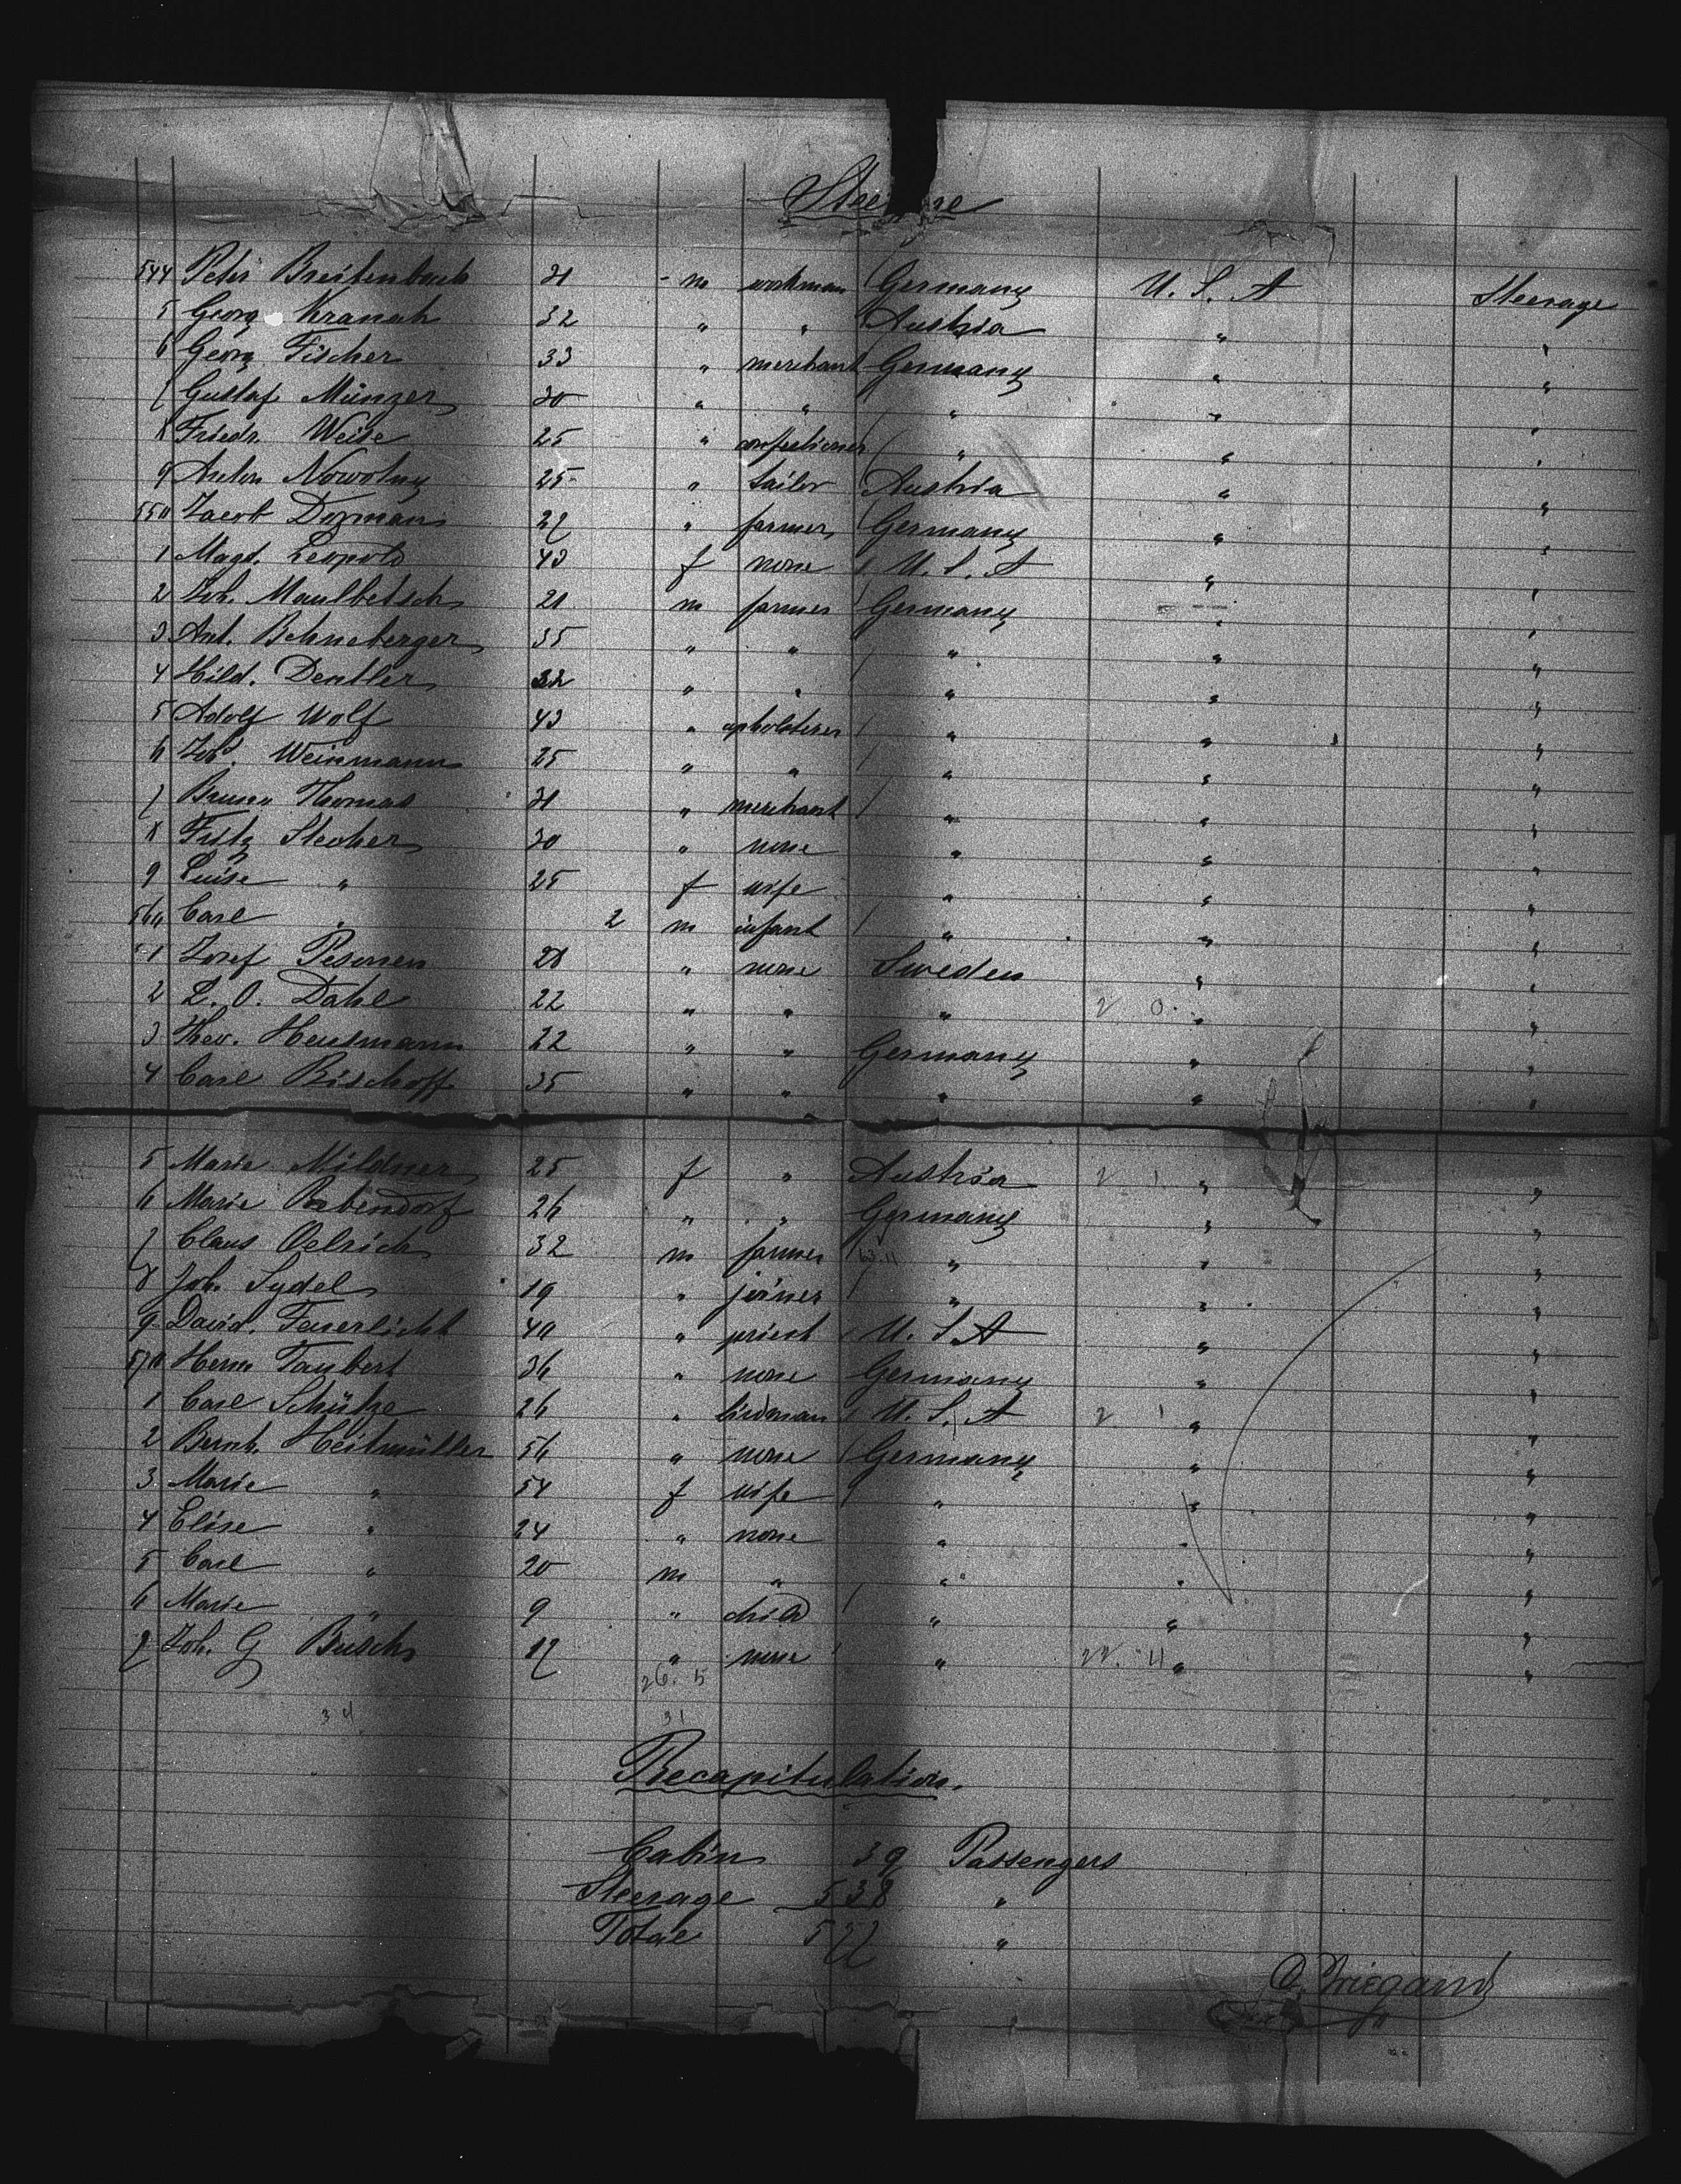 Steerage
544 Peter Breitenbach 31 m workman Germany U. S. A Steerage
5 Georg Kranah 32 " " Austria " "
6 Georg Fischer 33 " merchant Germany " "
7 Gustaf Münzer 30 " " " " "
8 Friedr. Weise 25 " confectioner " " "
9 Anton Nowotny 25 " tailor Austria " "
550 Jacob Dormann 27 " farmer Germany " "
1 Magd. Leopold 43 f none U. S. A " "
2 Joh. Maulbetsch 21 m farmer Germany " "
3 Ant. Behneberger 35 " " " " "
4 Hild. Dentler 32 " " " " "
5 Adolf Wolf 43 " upholsterer " " "
6 Joh. Weinmann 25 " " " " "
7 Bruno Thomas 31 " merchant " " "
8 Fritz Stecher 30 " none " " "
9 Luise " 25 f wife " " "
560 Carl " 2 m infant " " "
1 Josef Pesonen 28 " none Sweden " "
2 L. O. Dahl 22 " " " 2 0. " "
3 Theo. Heusmann 22 " " Germany " "
4 Carl Bischoff 35 " " " " "
5 Marie Mildner 25 f " Austria 2 1 " "
6 Marie 26 " " Germany " "
7 Claus Oelrich 32 m farmer 63.11 " " "
8 Joh. Sydel 19 " joiner " " "
9 David. Feuerlicht 40 " priest U. S. A " "
570 Herm Taubert 36 " none Germany " "
1 Carl Schütze 26 " birdman U. S. A 2 1 " "
2 Bernh. Heitmüller 56 " none Germany " "
3 Marie " 54 f wife " " "
4 Elise " 24 " none " " "
5 Carl " 20 m " " " "
6 Marie " 9 " child " " "
7 Joh. G Busch 17 " none " 22. 11 " "
26. 5
34 31
Recapitulation.
Cabin 39 Passengers
Steerage 538 "
Total 577 "